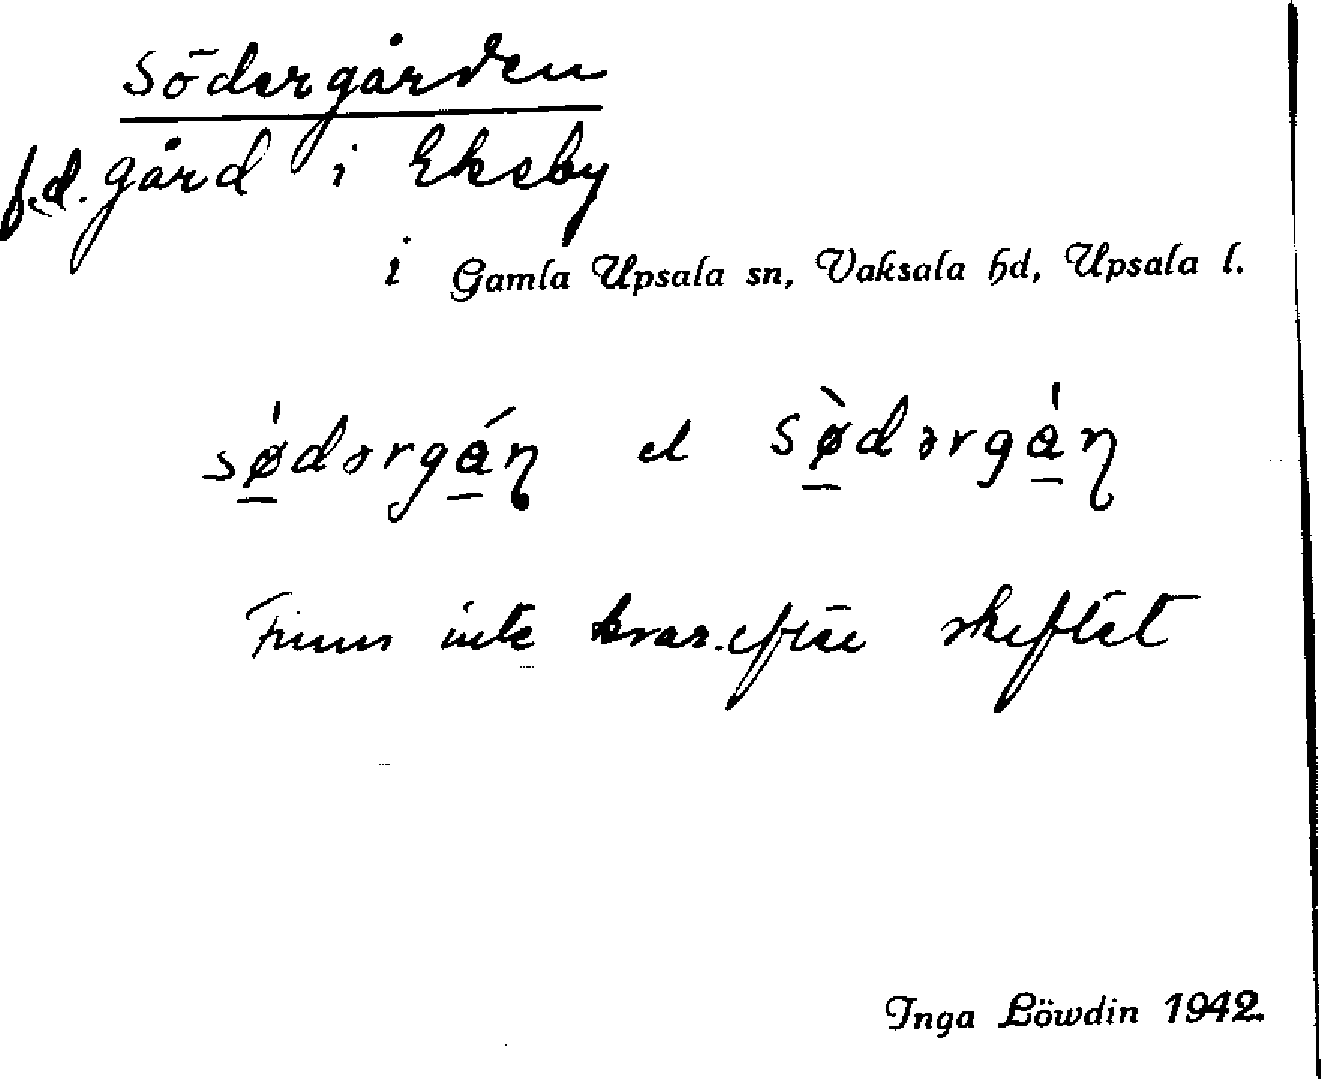 Södergården
f.d. gård i Ekeby
i Gamla Upsala sn, Vaksala hd, Upsala l.
sǿ̲dərgá̲ɳ el sø̲̀dərgá̲ɳ
Finns inte kvar efter skeftet
Inga Löwdin 1942.